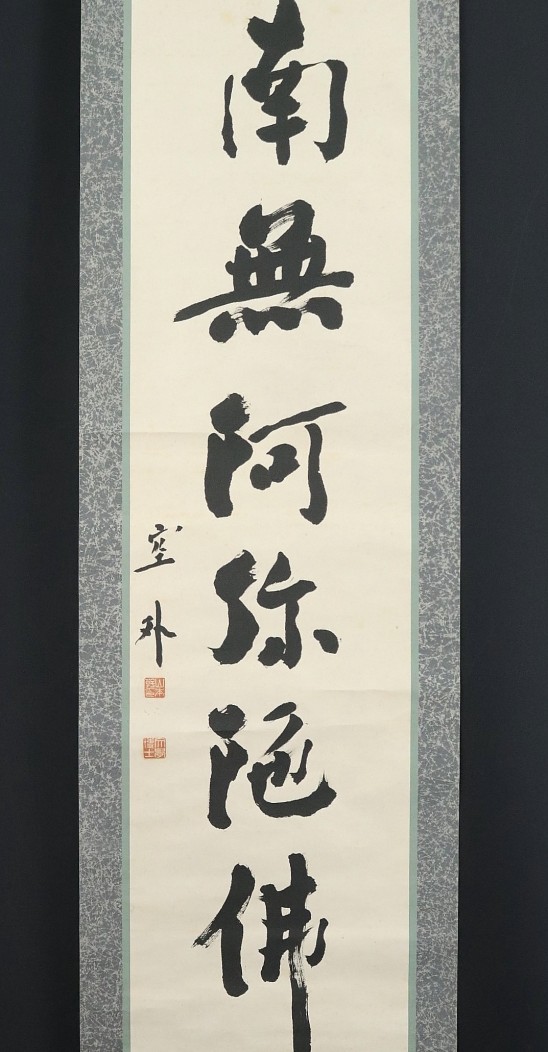 南無阿弥陀佛
空外